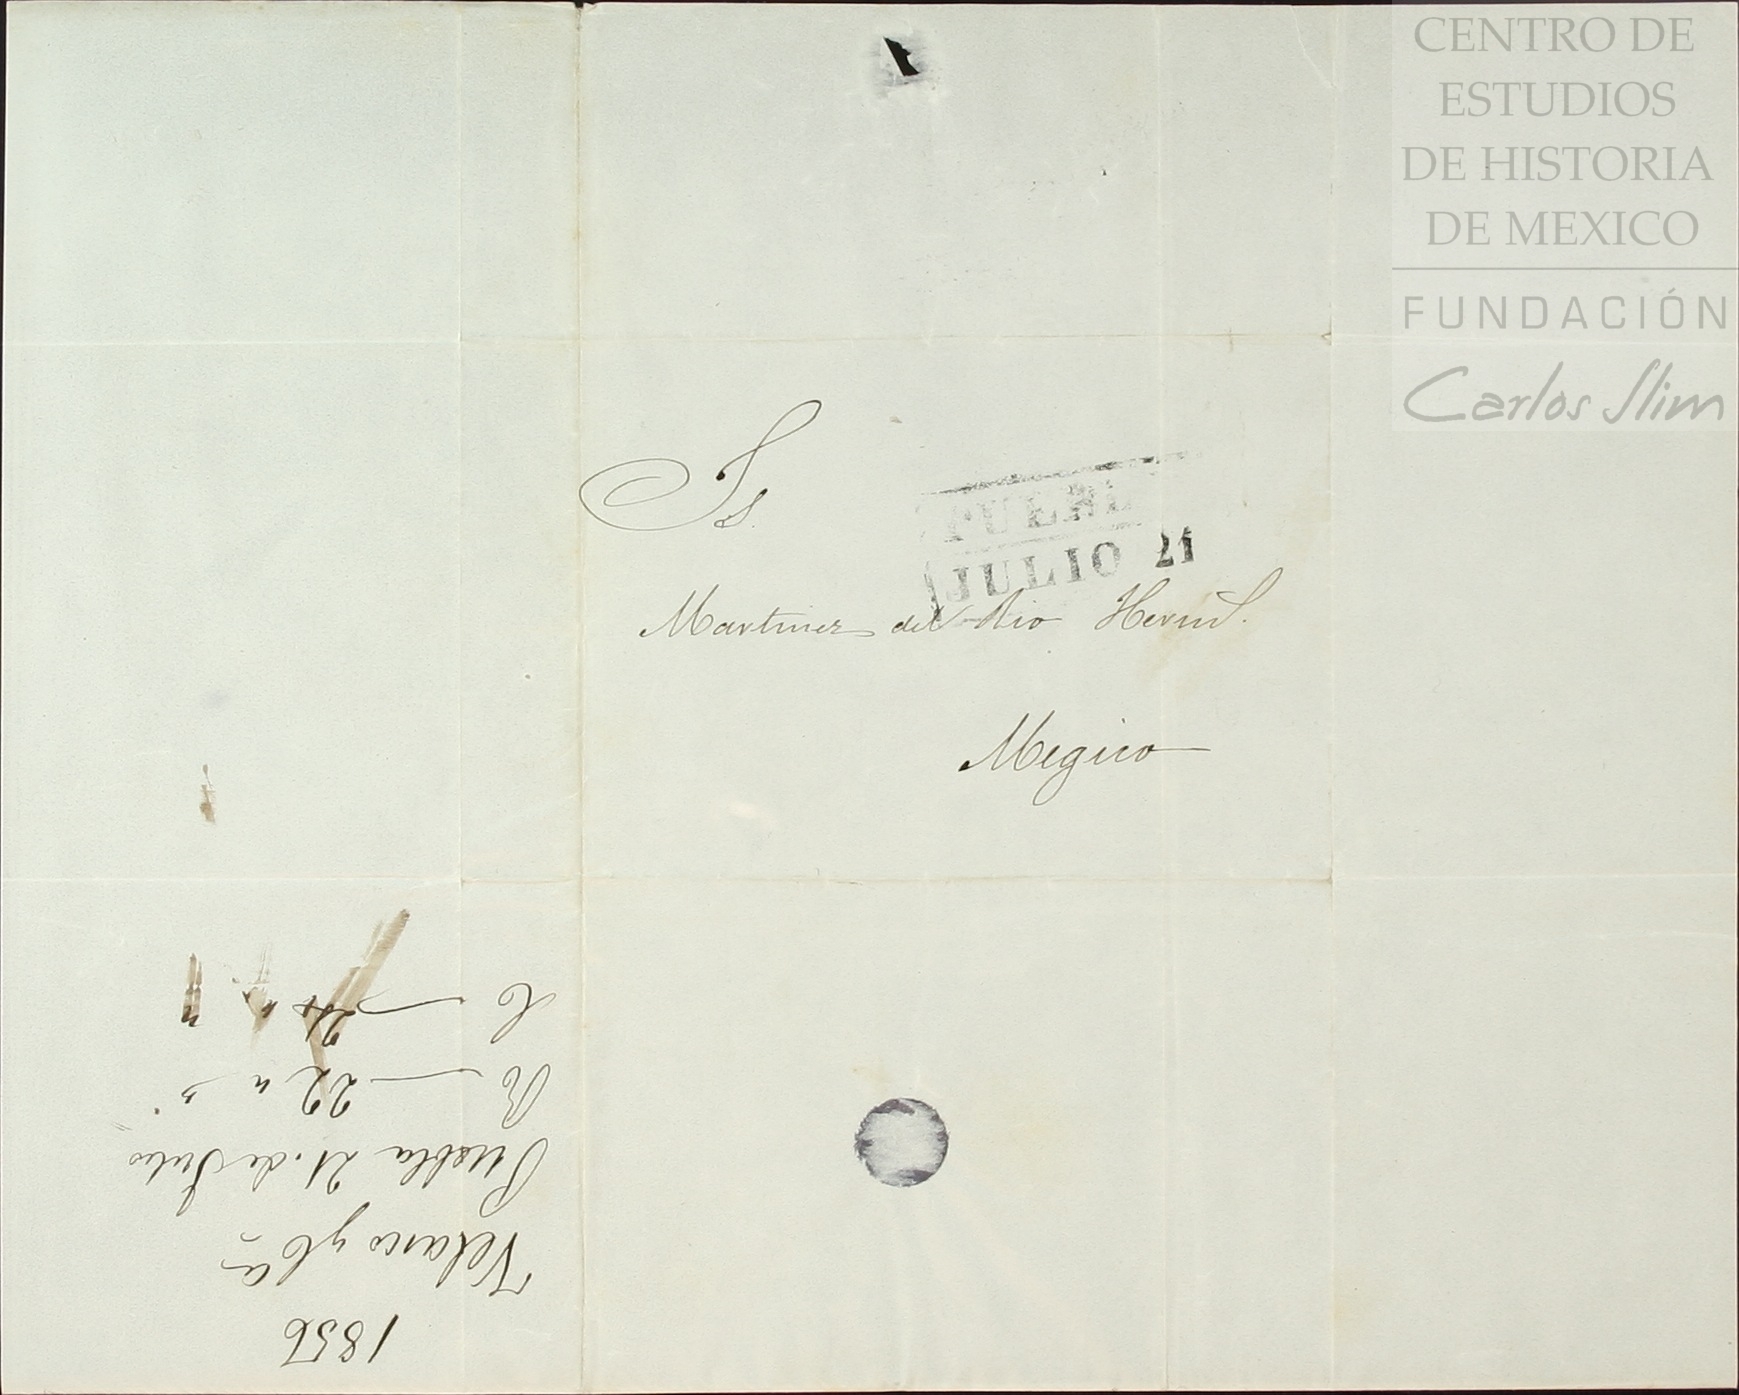 CENTRO DE
ESTUDIOS
DE HISTORIA
DE MEXICO
FUNDACIÓN
Carlos Slim
Ss.
PUEBL
JULIO 21
Martinez del Rio Herms.
Megico
1856
Velasco y Ca
Puebla 21. de Julio
R — 22 " "
C — 24 " "